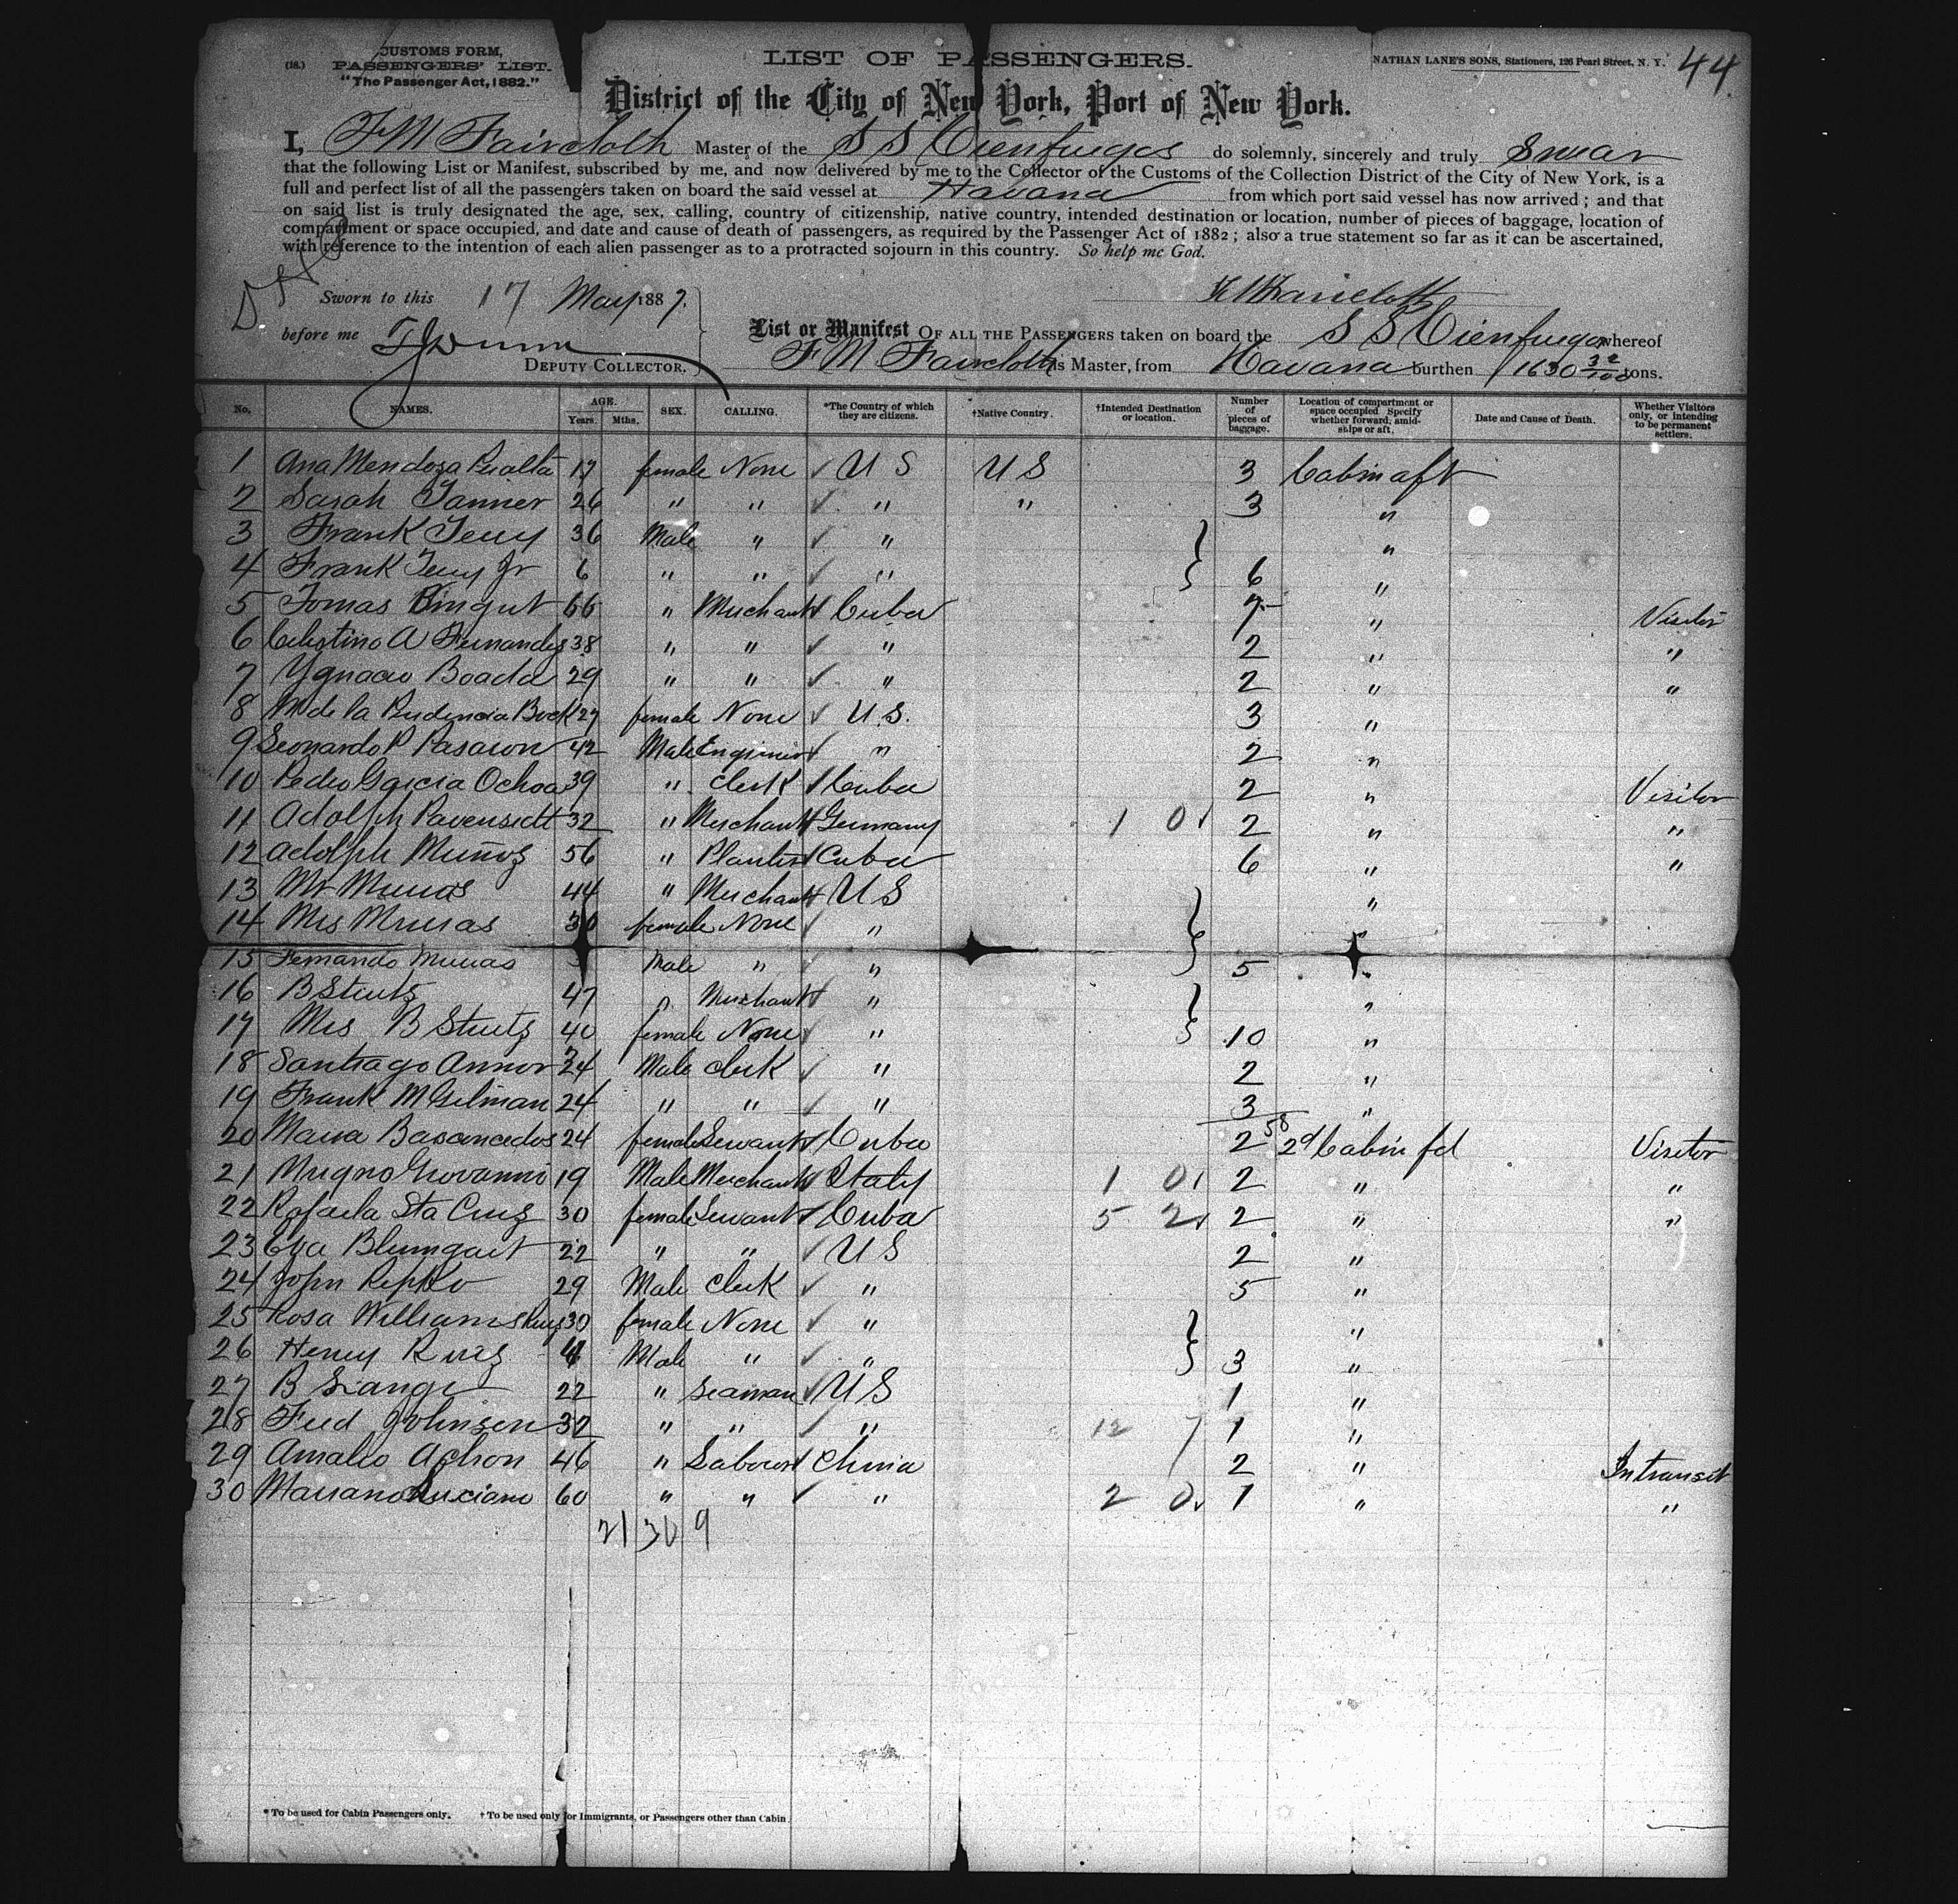 (18.) CUSTOMS FORM,
PASSENGERS' LIST.
"The Passenger Act, 1882."
LIST OF PASSENGERS.
NATHAN LANE'S SONS, Stationers, 126 Pearl Street, N. Y.
44
District of the City of New York, Port of New York.
I, F M Faircloth Master of the S S Cienfuegos do solemnly, sincerely and truly Swear
that the following List or Manifest, subscribed by me, and now delivered by me to the Collector of the Customs of the Collection District of the City of New York, is a
full and perfect list of all the passengers taken on board the said vessel at Havana from which port said vessel has now arrived; and that
on said list is truly designated the age, sex, calling, country of citizenship, native country, intended destination or location, number of pieces of baggage, location of
compartment or space occupied, and date and cause of death of passengers, as required by the Passenger Act of 1882; also a true statement so far as it can be ascertained,
with reference to the intention of each alien passenger as to a protracted sojourn in this country. So help me God.
Sworn to this 17 May 1887.
F M Faircloth
before me
DEPUTY COLLECTOR.
List or Manifest OF ALL THE PASSENGERS taken on board the S S Cienfuegos whereof
F M Faircloth is Master, from Havana burthen 1630 32/100 tons.
No. NAMES. AGE. Years. Mths. SEX. CALLING. *The Country of which they are citizens. †Native Country. †Intended Destination or location. Number of pieces of baggage. Location of compartment or space occupied. Specify whether forward, amidships or aft. Date and Cause of Death. Whether Visitors only, or intending to be permanent settlers.
1 Ana Mendoza Peralta 17 female None ✓ U S U S 3 Cabin aft
2 Sarah Tanner 26 " " ✓ " " 3 "
3 Frank Terry 36 Male " ✓ " "
4 Frank Terry Jr 6 " " ✓ " 6 "
5 Tomas 66 " Merchant ✓ Cuba 7 " Visitor
6 Celestino A Fernandez 38 " " ✓ " 2 " "
7 Ygnacio Boada 29 " " ✓ " 2 " "
8 M de la Prudencia Bock 27 female None ✓ U.S. 3 "
9 Leonardo P 42 Male Engineer ✓ " 2 "
10 Pedro Garcia Ochoa 39 " Clerk ✓ Cuba 2 " Visitor
11 Adolph Pavenstedt 32 " Merchant ✓ Germany 1 0 ✓ 2 " "
12 Adolph Muñoz 56 " Planter ✓ Cuba 6 " "
13 Mr 44 " Merchant ✓ U S "
14 Mrs 30 female None ✓ " "
15 Fernando Male " ✓ " 5 "
16 B Stutz 47 " Merchant ✓ " "
17 Mrs B Stutz 40 female None ✓ " 10 "
18 Santiago 24 Male Clerk ✓ " 2 "
19 Frank M Gilman 24 " " ✓ " 3 "
58
20 Maria 24 female Servant ✓ Cuba 2 2d Cabin fd Visitor
21 Mugno Giovanni 19 Male Merchant ✓ Italy 1 0 ✓ 2 " "
22 Rafaela Sta Cruz 30 female Servant ✓ Cuba 5 2 ✓ 2 " "
23 Eva Blumgart 22 " " ✓ U S 2 "
24 John Repko 29 Male Clerk ✓ " 5 "
25 Rosa Williams Ruiz 30 female None ✓ " "
26 Henry Ruiz 4 Male " ✓ " 3 "
27 B 22 " Seaman ✓ U S 1 "
28 Fred Johnson 32 " " ✓ " 12 7 1 "
29 Amalio Achon 46 " Laborer ✓ China 2 " Intransit
30 Mariano Luciano 60 " " ✓ " 2 0 ✓ 1 " "
21 30 9
* To be used for Cabin Passengers only. † To be used only for Immigrants, or Passengers other than Cabin.